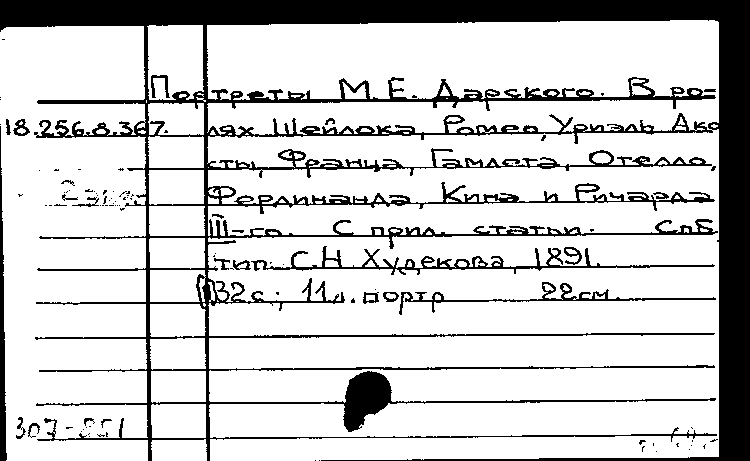 Портреты М.Е. Дарского. В ро=
18.256.8.367. лях Шейлока, Ромео, Уриэль Ако
сты, Франца, Гамлета, Отелло,
2 экз. Фердинанда, Кина и Ричарда
III-го. С прил. статьи. СпБ
тип. С.Н. Худекова, 1891.
32 с.; 11 л. портр 22 см.
307-851